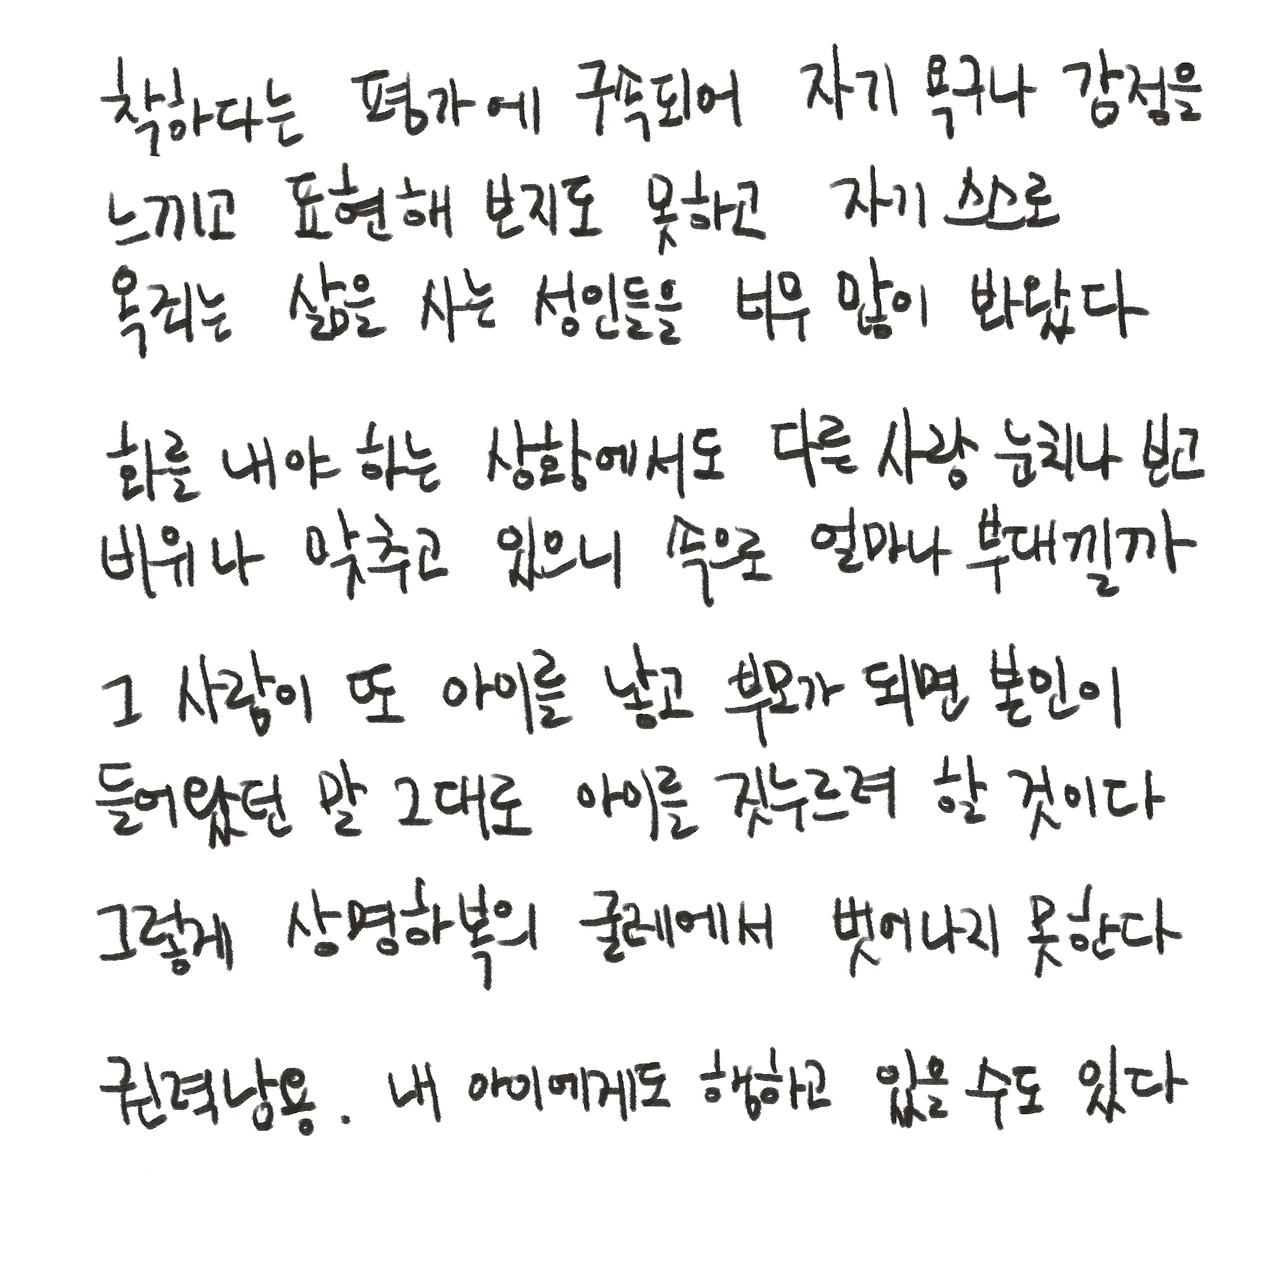 착하다는 평가에 구속되어 자기 욕구나 감정을
느끼고 표현해 보지도 못하고 자기 스스로
옥죄는 삶을 사는 성인들을 너무 많이 봐왔다
화를 내야 하는 상황에서도 다른 사람 눈치나 보고
비위나 맞추고 있으니 속으로 얼마나 부대낄까
그 사람이 또 아이를 낳고 부모가 되면 본인이
들어왔던 말 그대로 아이를 짓누르려 할 것이다
그렇게 상명하복의 굴레에서 벗어나지 못한다
권력남용. 내 아이에게도 행하고 있을 수도 있다